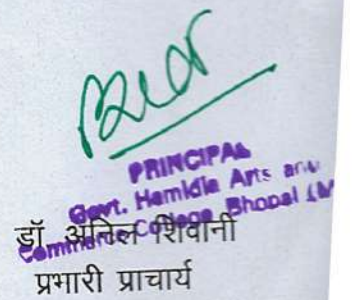 PRINCIPAL
Govt. Hamidia Arts and
Commerce College Bhopal
डॉ. अनिल शिवानी
प्रभारी प्राचार्य